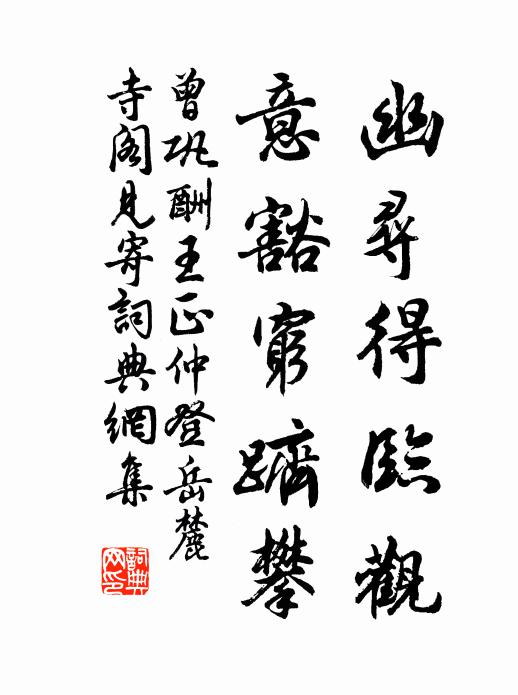 幽尋得臨觀
意豁窮躋攀
曾巩酬王正仲登岳麓
寺阁見寄詞典網集
詞典
网印